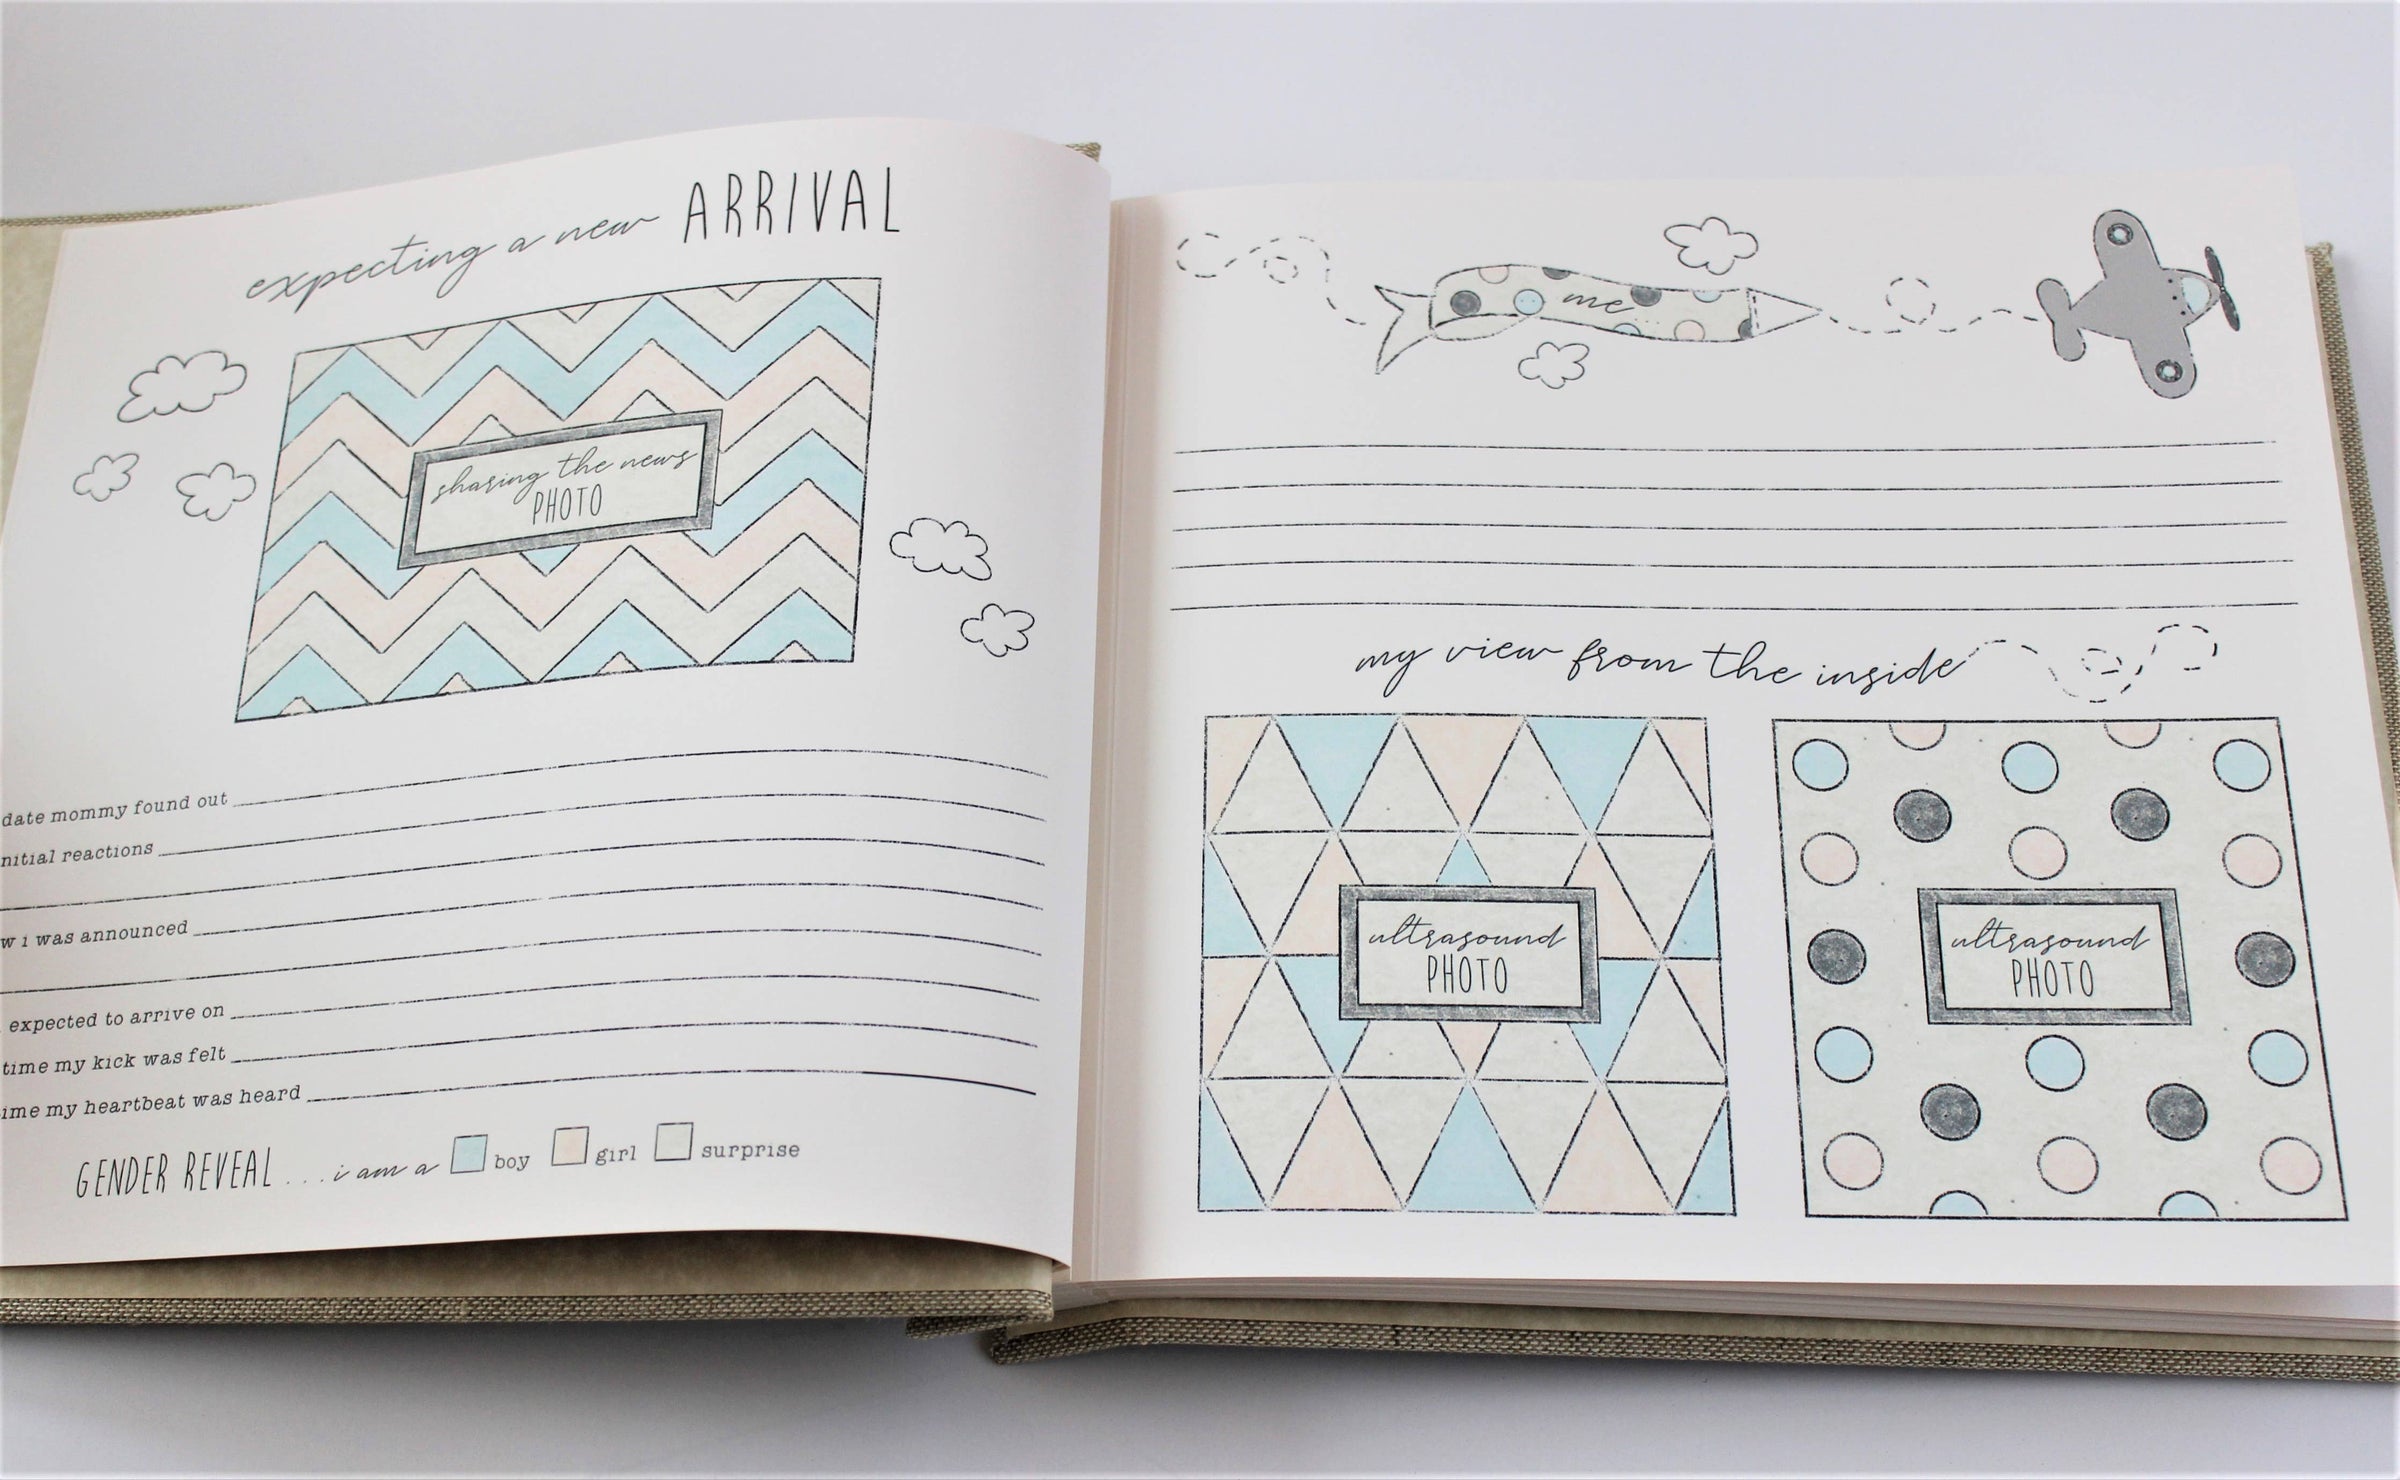 expecting a new ARRIVAL
sharing the news
PHOTO
date mommy found out
nitial reactions
w i was announced
expected to arrive on
time my kick was felt
ime my heartbeat was heard
GENDER REVEAL ...i am a boy girl surprise
me...
my view from the inside
ultrasound
PHOTO
ultrasound
PHOTO